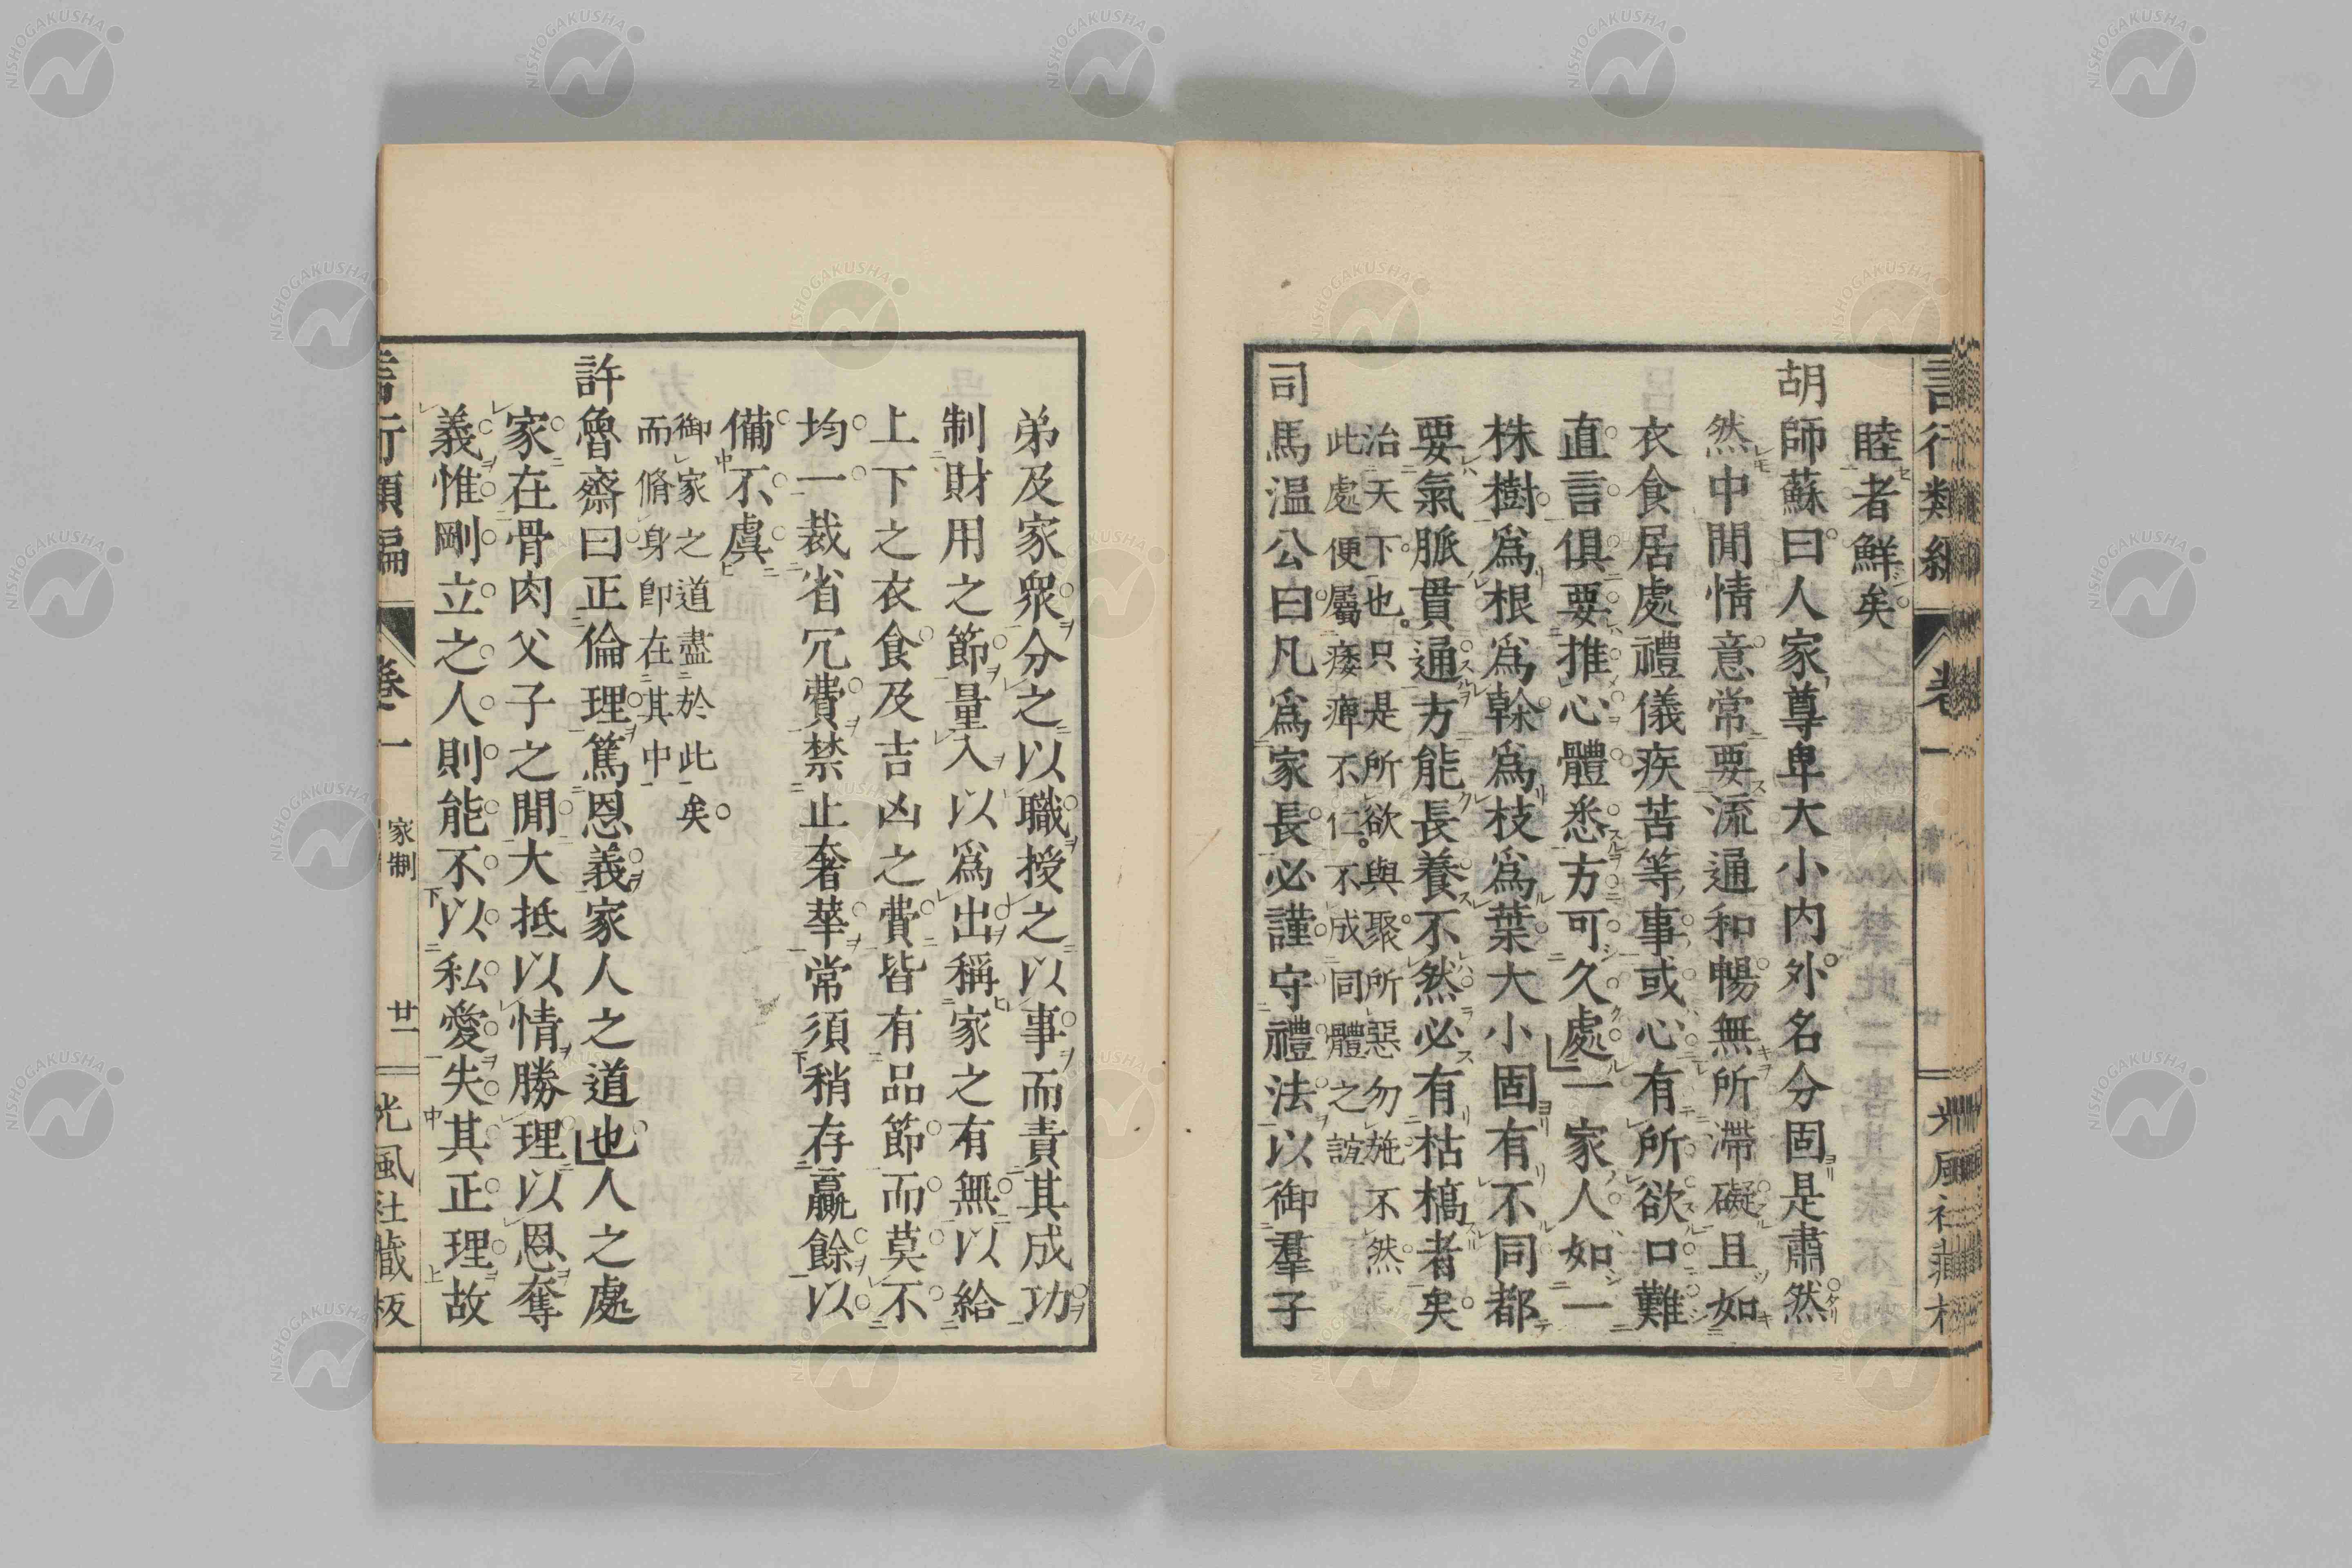 睦者鮮矣
胡師蘇曰人家尊卑大小内外名分固是肅然
然中閒情意常要流通和暢無所滯礙且如
衣食居處禮儀疾苦等事或心有所欲口難
直言俱要推心體悉方可久處一家人如一
株樹爲根爲榦爲枝爲葉大小固有不同都
要氣脈貫通方能長養不然必有枯槁者矣
治天下也只是所欲與聚所惡勿施不然
此處便屬痿痺不仁不成同體之誼
司馬温公曰凡爲家長必謹守禮法以御羣子
弟及家衆分之以職授之以事而責其成功
制財用之節量入以爲出稱家之有無以給
上下之衣食及吉凶之費皆有品節而莫不
均一裁省冗費禁止奢華常須稍存贏餘以
備不虞
御家之道盡於此矣
而脩身卽在其中
許魯齋曰正倫理篤恩義家人之道也人之處
家在骨肉父子之閒大抵以情勝理以恩奪
義惟剛立之人則能不以私愛失其正理故
言行類編 卷一 家制 廿一 光風社藏板
NISHOGAKUSHA